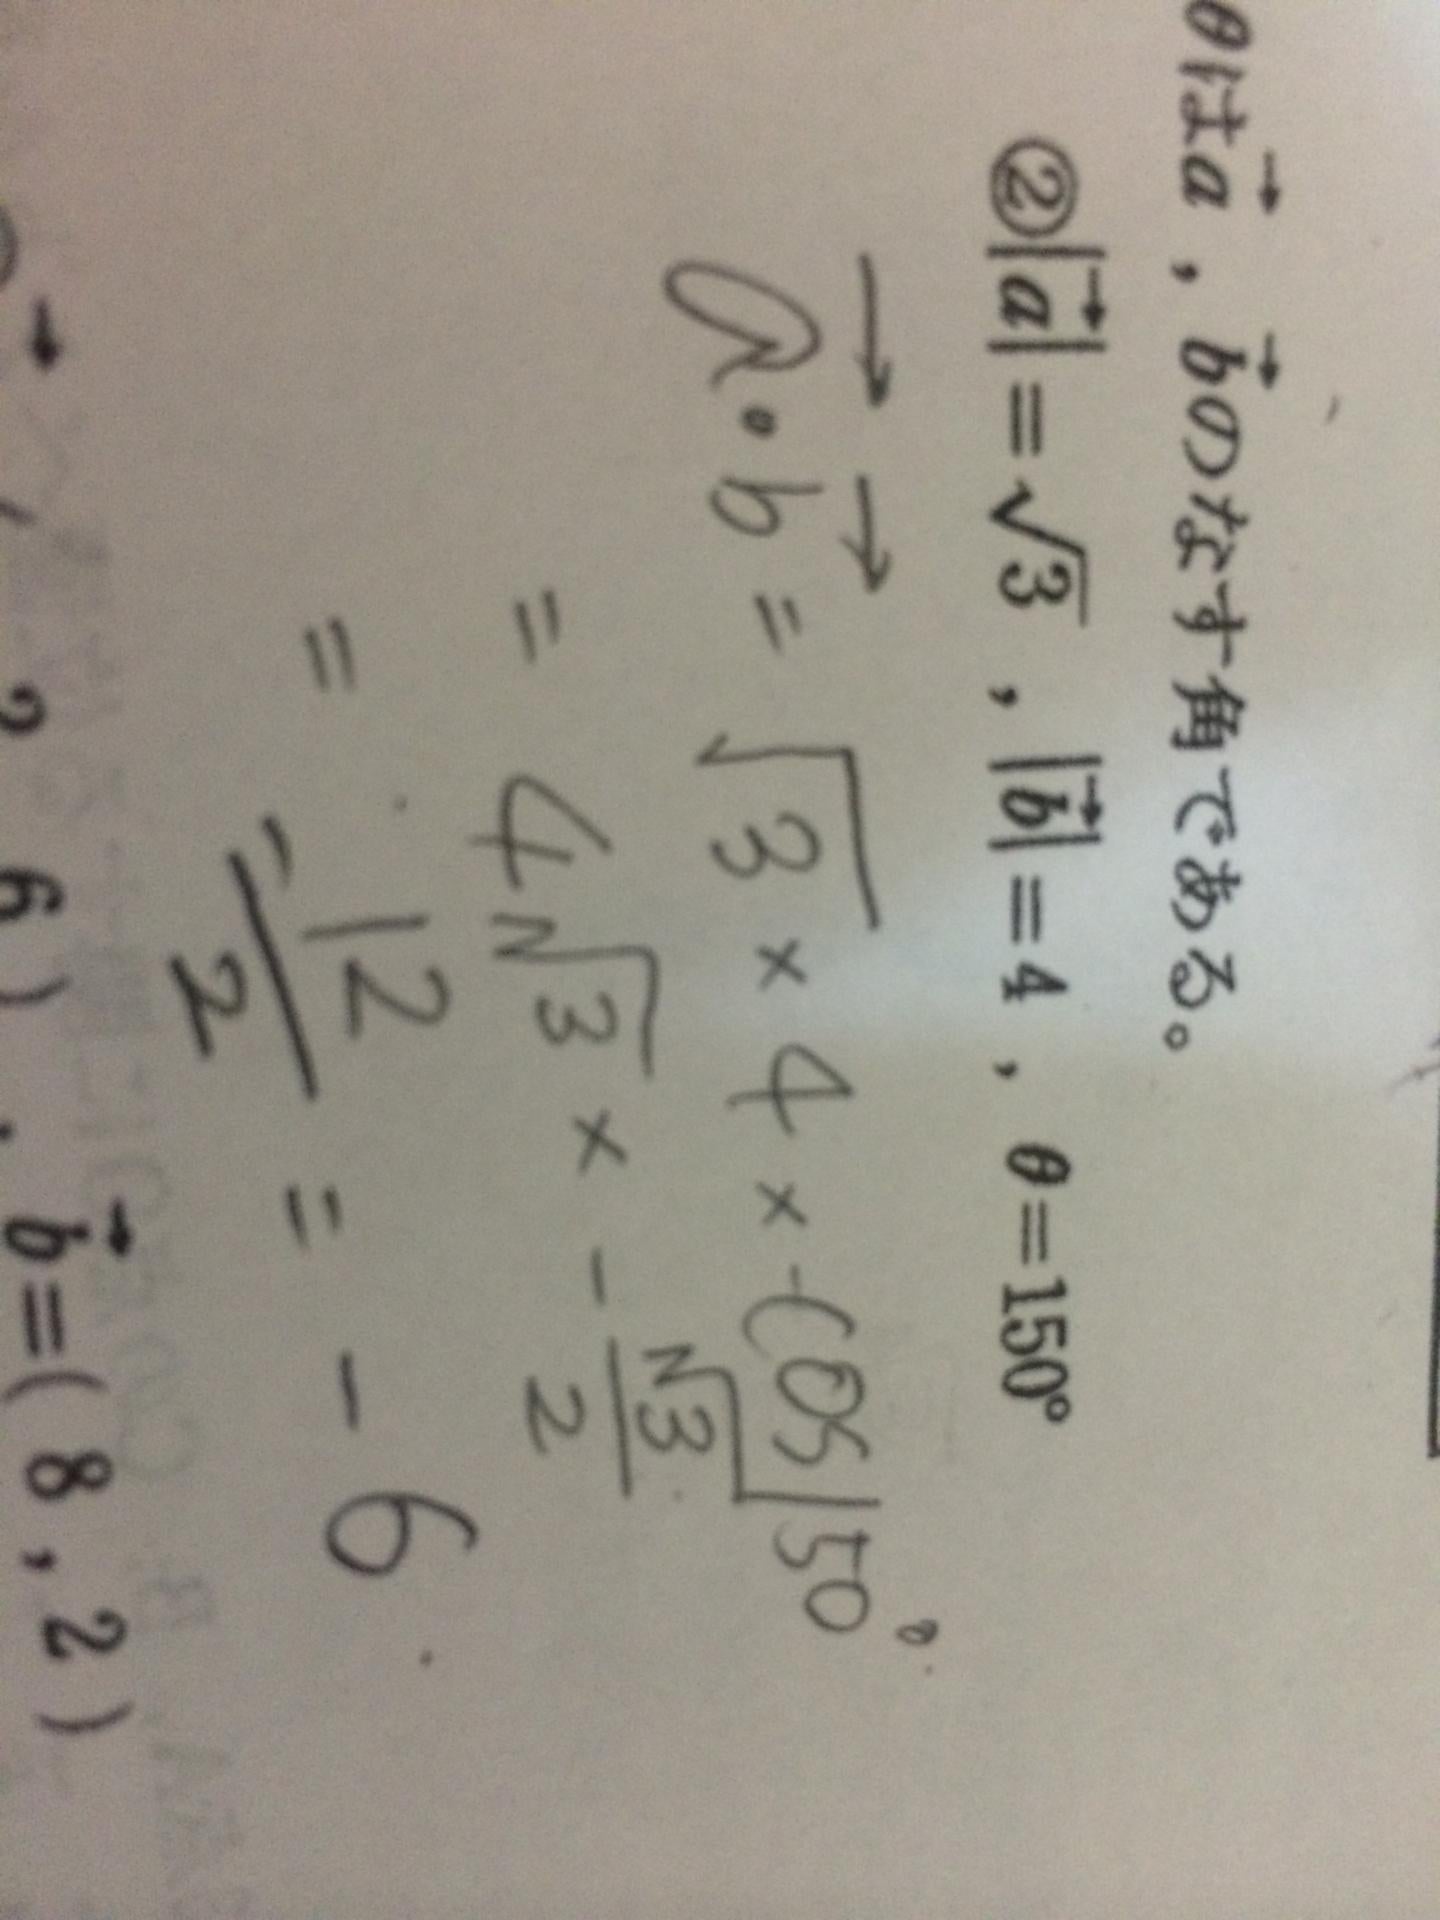 θはa→, b→のなす角である。
②|a→|=√3, |b→|=4, θ=150°
a→・b→=√3×4×-cos150°
=4√3×-√3/2
=-12/2=-6
2 6), b→=(8,2)